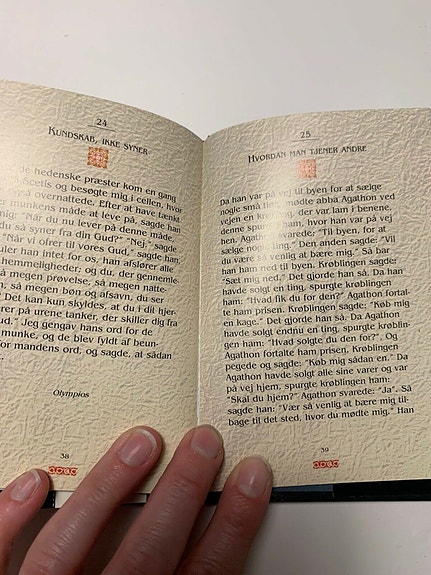 24
KUNDSKAB, IKKE SYNER
de hedenske præster kom en gang
Scetis og besøgte mig i cellen, hvor
overnattede. Efter at have tænkt
munkens måde at leve på, sagde han
mig: "Når du lever på denne måde,
du så syner fra din Gud?" "Nej," sagde
"Når vi ofrer til vores Gud," sagde han,
er han intet for os, han afslører alle
hemmeligheder; og du, der gennemle-
så megen prøvelse, så megen natte-
så megen bøn og afsavn, du ser
Det kan kun skyldes, at du i dit hjer-
rer på urene tanker, der skiller dig fra
ud." Jeg gengav hans ord for de
munke, og de blev fyldt af beun-
for mandens ord, og sagde, at sådan
Olympios
38
25
HVORDAN MAN TJENER ANDRE
Da han var på vej til byen for at sælge
nogle små ting, mødte abba Agathon ved
vejen en krøbling, der var lam i benene,
denne spurgte ham, hvor han var på vej
hen. Agathon svarede: "Til byen, for at
sælge nogle ting." Den anden sagde: "Vil
du være så venlig at bære mig." Så bar
han ham ned til byen. Krøblingen sagde:
"Sæt mig ned." Det gjorde han så. Da han
havde solgt en ting, spurgte krøblingen
ham: "Hvad fik du for den?" Agathon fortal-
te ham prisen. Krøblingen sagde: "Køb mig
en kage." Det gjorde han så. Da Agathon
havde solgt endnu en ting, spurgte krøblin-
gen ham: "Hvad solgte du den for?". Og
Agathon fortalte ham prisen. Krøblingen
pegede og sagde: "Køb mig sådan en." Da
Agathon havde solgt alle sine varer og var
på vej hjem, spurgte krøblingen ham:
"Skal du hjem?" Agathon svarede: "Ja". Så
sagde han: "Vær så venlig at bære mig til-
bage til det sted, hvor du mødte mig." Han
39